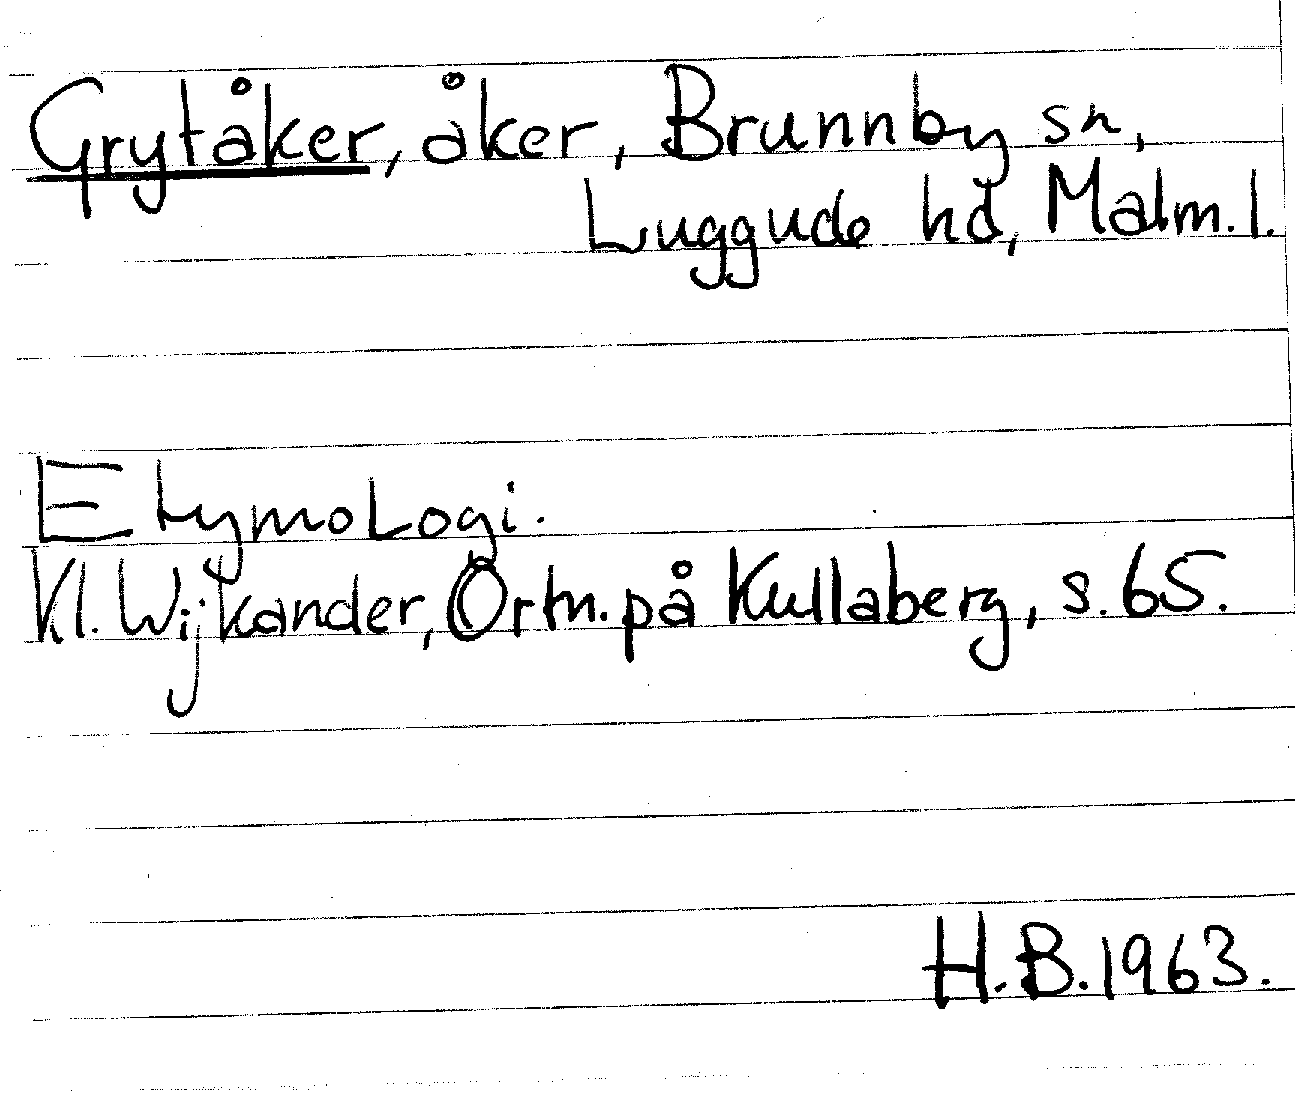 Grytåker, åker, Brunnby sn,
Luggude hd, Malm. l.
Etymologi.
Kl. Wijkander, Ortn. på Kullaberg, s. 65.
H.B. 1963.